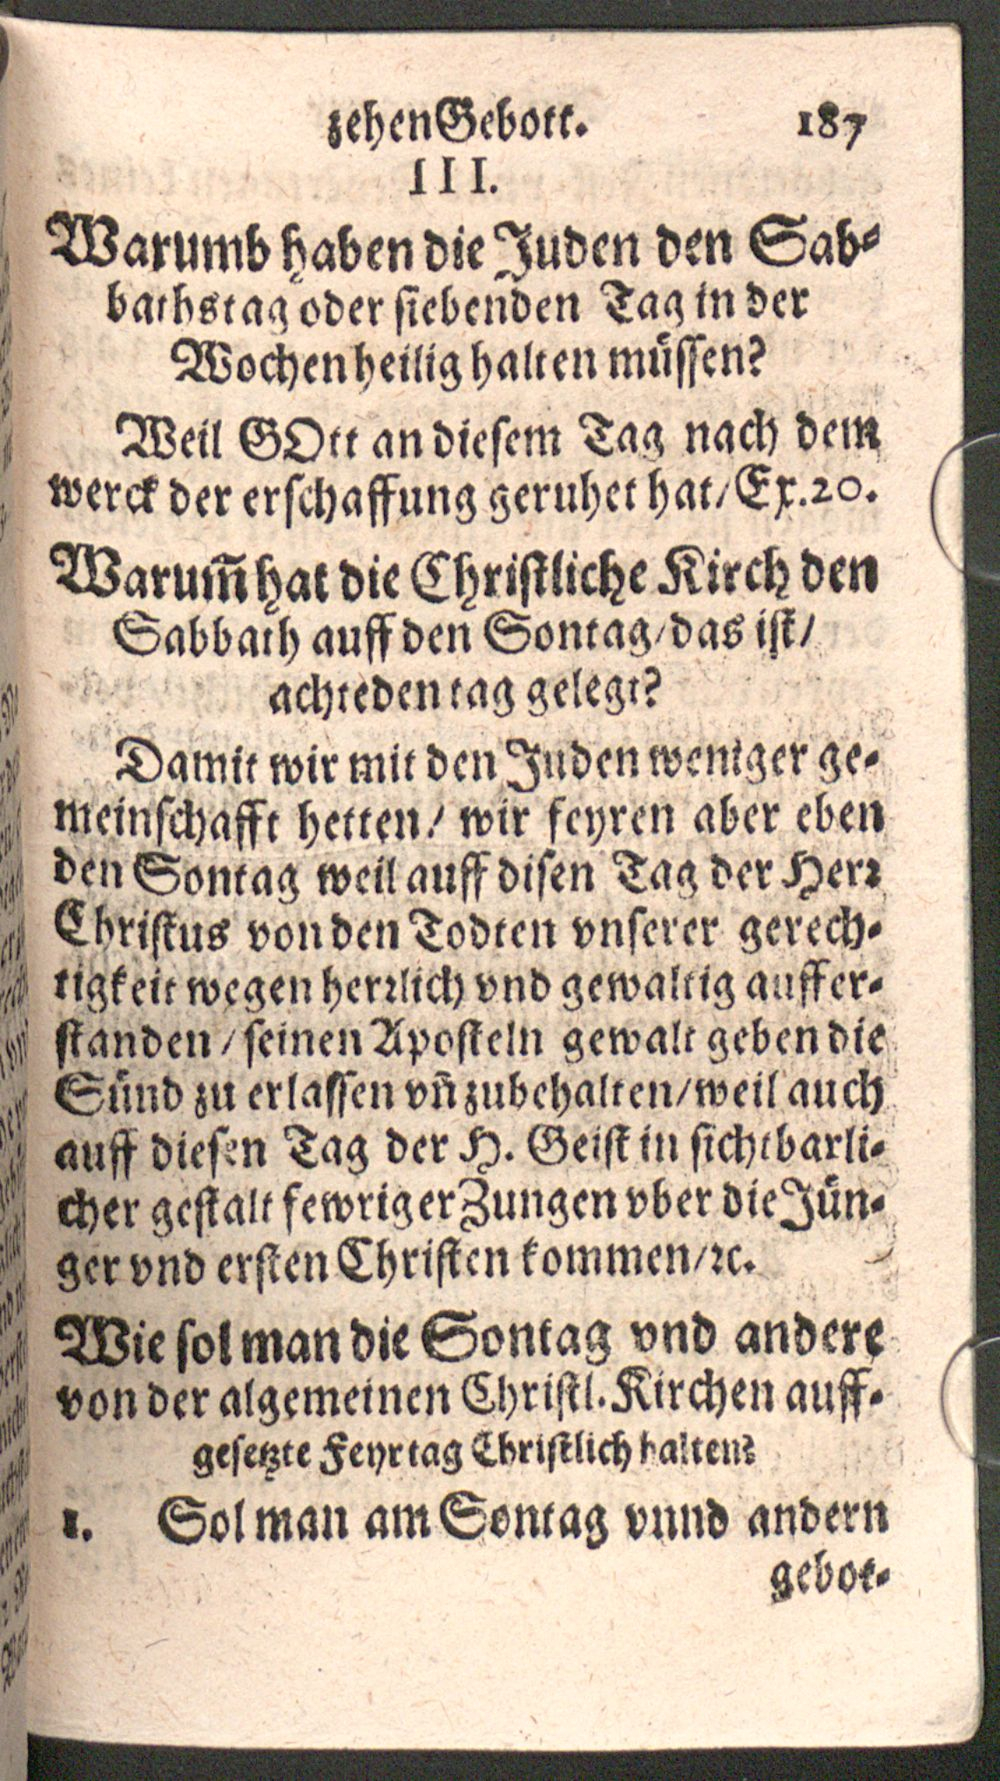 zehen Gebott. 187
III.
Warumb haben die Juden den Sab-
bathstag oder siebenden Tag in der
Wochen heilig halten müssen?
Weil GOtt an diesem Tag nach dem
werck der erschaffung geruhet hat/ Ex. 20.
Warum̃ hat die Christliche Kirch den
Sabbath auff den Sontag/ das ist/
achteden tag gelegt?
Damit wir mit den Juden weniger ge-
meinschafft hetten/ wir feyren aber eben
den Sontag weil auff disen Tag der Herꝛ
Christus von den Todten vnserer gerech-
tigkeit wegen herꝛlich vnd gewaltig auffer-
standen/ seinen Aposteln gewalt geben die
Sünd zu erlassen vñ zubehalten/ weil auch
auff diesen Tag der H. Geist in sichtbarli-
cher gestalt fewriger Zungen vber die Jün-
ger vnd ersten Christen kommen/ ꝛc.
Wie sol man die Sontag vnd andere
von der algemeinen Christl. Kirchen auff-
gesetzte Feyrtag Christlich halten?
1. Sol man am Sontag vnnd andern
gebot-